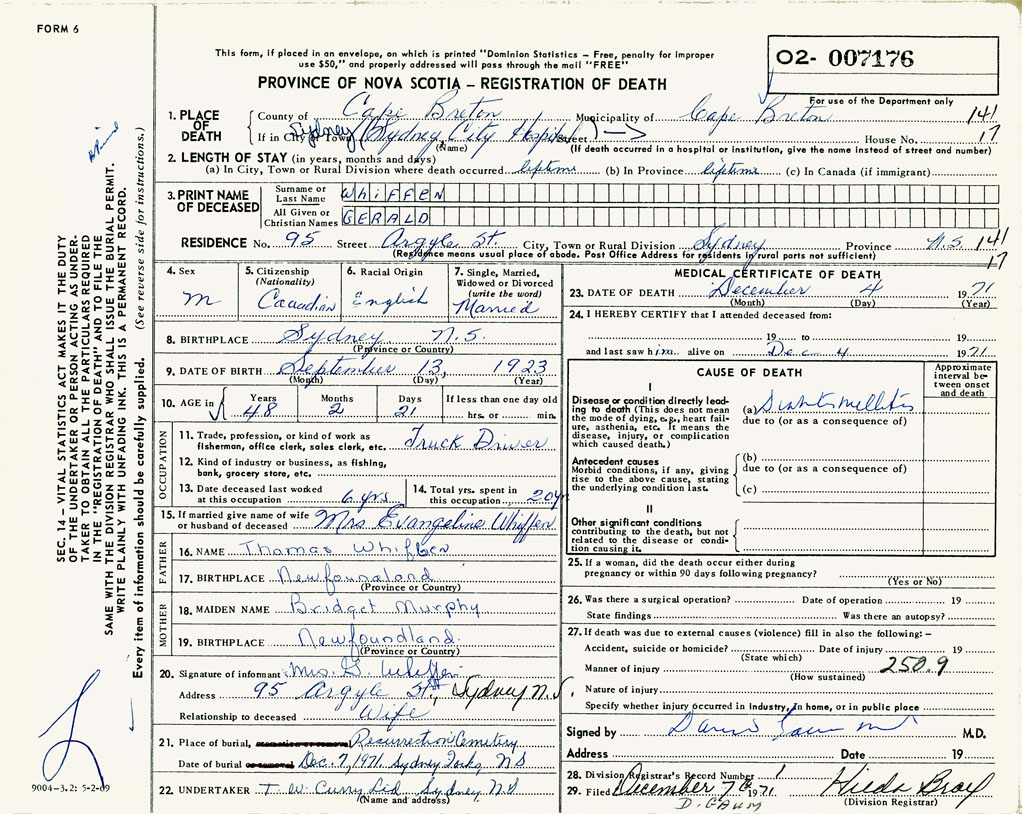 FORM 6
This form, if placed in an envelope, on which is printed "Dominion Statistics – Free, penalty for improper
use $50," and properly addressed will pass through the mail "FREE"
PROVINCE OF NOVA SCOTIA – REGISTRATION OF DEATH
O2- 007176
For use of the Department only
1. PLACE OF DEATH
County of Cape Breton Municipality of Cape Breton 141
If in City or Town Sydney (Sydney City Hospital) Street House No. 17
(Name) (If death occurred in a hospital or institution, give the name instead of street and number)
2. LENGTH OF STAY (in years, months and days)
(a) In City, Town or Rural Division where death occurred liptime (b) In Province liptime (c) In Canada (if immigrant)
3. PRINT NAME OF DECEASED
Surname or Last Name WhiFFEN
All Given or Christian Names GERALD
RESIDENCE No. 95 Street Argyle St. City, Town or Rural Division Sydney Province N.S. 141
(Residence means usual place of abode. Post Office Address for residents in rural parts not sufficient) 17
4. Sex
M
5. Citizenship (Nationality)
Canadian
6. Racial Origin
English
7. Single, Married, Widowed or Divorced (write the word)
Married
8. BIRTHPLACE Sydney N.S.
(Province or Country)
9. DATE OF BIRTH September 13, 1923
(Month) (Day) (Year)
10. AGE in Years Months Days If less than one day old
48 2 21 hrs. or min.
OCCUPATION
11. Trade, profession, or kind of work as
fisherman, office clerk, sales clerk, etc. Truck Driver
12. Kind of industry or business, as fishing,
bank, grocery store, etc.
13. Date deceased last worked
at this occupation 6 yrs
14. Total yrs. spent in
this occupation 20yr
15. If married give name of wife
or husband of deceased Mrs Evangeline Whiffen
FATHER
16. NAME Thomas Whiffen
17. BIRTHPLACE Newfoundland
(Province or Country)
MOTHER
18. MAIDEN NAME Bridget Murphy
19. BIRTHPLACE Newfoundland
(Province or Country)
20. Signature of informant Mrs. G Whiffen
Address 95 Argyle St, Sydney N.S.
Relationship to deceased Wife
21. Place of burial, cremation or removal Resurrection Cemetery
Date of burial or removal Dec. 7, 1971. Sydney Forks, NS
22. UNDERTAKER T. W. Curry Ltd Sydney, NS
(Name and address)
MEDICAL CERTIFICATE OF DEATH
23. DATE OF DEATH December 4 1971
(Month) (Day) (Year)
24. I HEREBY CERTIFY that I attended deceased from:
19 to 19
and last saw him alive on Dec 4 1971
CAUSE OF DEATH
Approximate interval between onset and death
I
Disease or condition directly lead-
ing to death (This does not mean
the mode of dying, e.g., heart fail-
ure, asthenia, etc. It means the
disease, injury, or complication
which caused death.)
(a) Diabetes mellitus
due to (or as a consequence of)
Antecedent causes
Morbid conditions, if any, giving
rise to the above cause, stating
the underlying condition last.
(b)
due to (or as a consequence of)
(c)
II
Other significant conditions
contributing to the death, but not
related to the disease or condi-
tion causing it.
25. If a woman, did the death occur either during
pregnancy or within 90 days following pregnancy?
(Yes or No)
26. Was there a surgical operation? Date of operation 19
State findings Was there an autopsy?
27. If death was due to external causes (violence) fill in also the following: –
Accident, suicide or homicide? Date of injury 19
(State which)
Manner of injury 250.9
(How sustained)
Nature of injury
Specify whether injury occurred in Industry, in home, or in public place
Signed by M.D.
Address Date 19
28. Division Registrar's Record Number 1
29. Filed December 7th 1971 Hilda Bray
D. GAUM (Division Registrar)
SEC. 14 – VITAL STATISTICS ACT MAKES IT THE DUTY
OF THE UNDERTAKER OR PERSON ACTING AS UNDER-
TAKER TO OBTAIN ALL THE PARTICULARS REQUIRED
IN THE "REGISTRATION OF DEATH" AND TO FILE THE
SAME WITH THE DIVISION REGISTRAR WHO SHALL ISSUE THE BURIAL PERMIT.
WRITE PLAINLY WITH UNFADING INK. THIS IS A PERMANENT RECORD.
Every item of information should be carefully supplied. (See reverse side for instructions.)
9004–3.2: 5-2-69